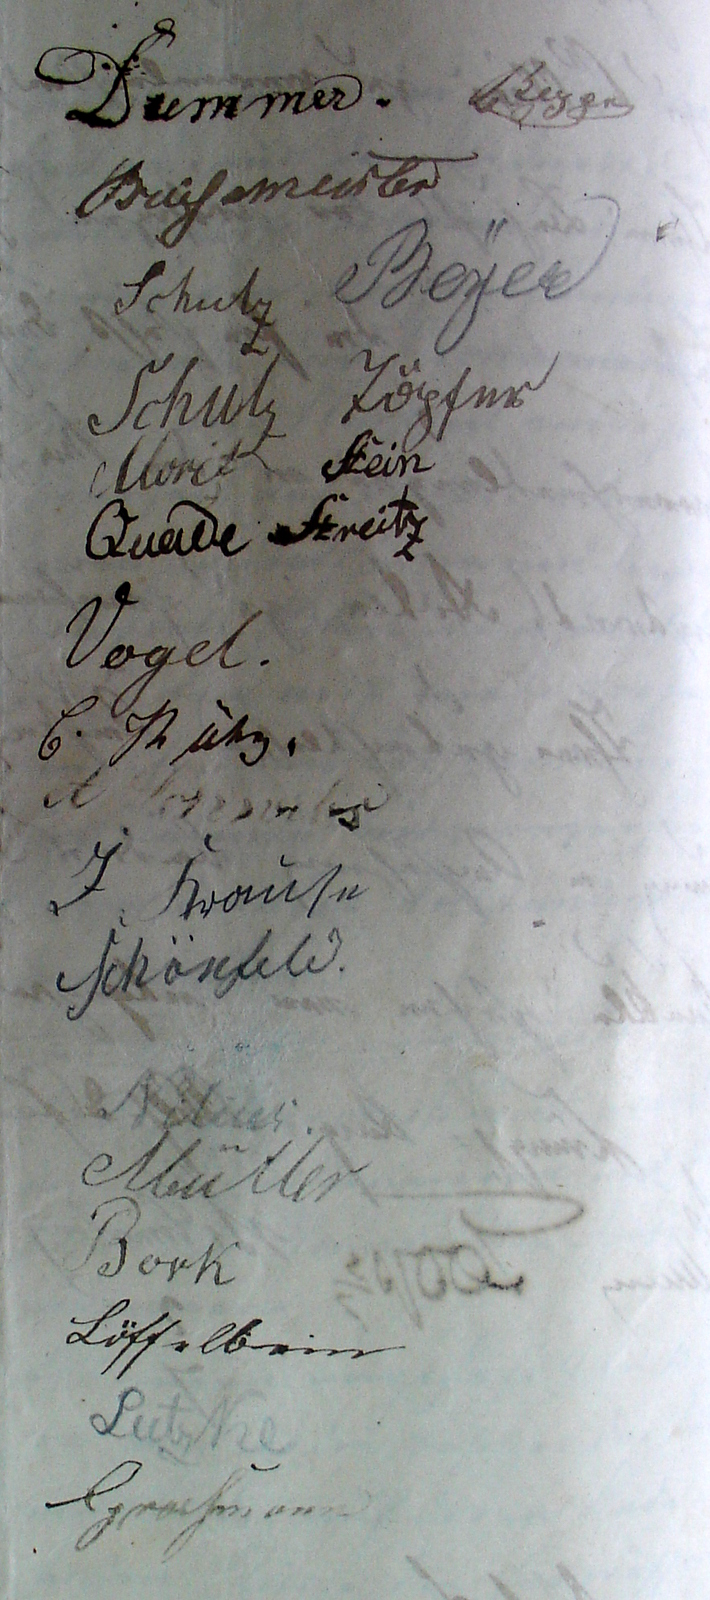 Dummer. Beyer
Buchsmeister
Schulz Beÿer
Schulz Töpfer
Moritz Stein
Quade Streitz
Vogel.
C. Kühn.
A
J Krause
Schönfeld.
Nilius.
Müller
Bork
Löffelbein
Lutzke
Graßmann